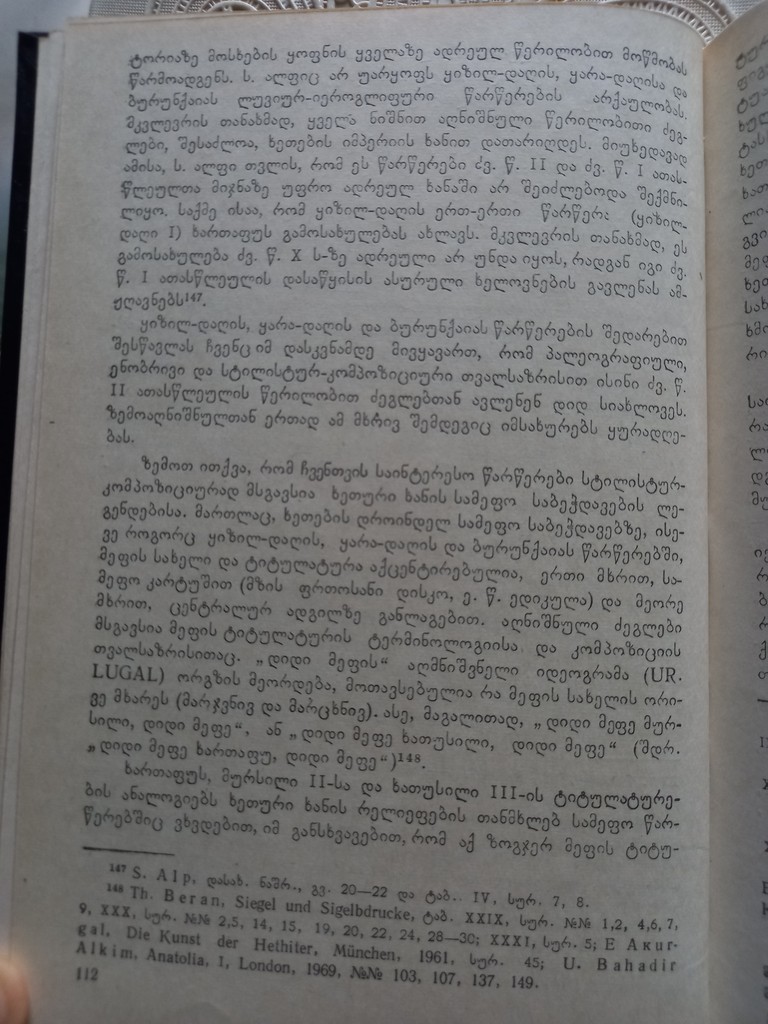 ტორიაზე მოსხების ყოფნის ყველაზე ადრეულ წერილობით მოწმობას
წარმოადგენს. ს. ალფიც არ უარყოფს ყიზილ-დაღის, ყარა-დაღისა და
ბურუნქაიას ლუვიურ-იეროგლიფური წარწერების არქაულობას.
მკვლევრის თანახმად, ყველა ნიშნით აღნიშნული წერილობითი ძეგ-
ლები, შესაძლოა, ხეთების იმპერიის ხანით დათარიღდეს. მიუხედავად
ამისა, ს. ალფი თვლის, რომ ეს წარწერები ძვ. წ. II და ძვ. წ. I ათას-
წლეულთა მიჯნაზე უფრო ადრეულ ხანაში არ შეიძლებოდა შექმნი-
ლიყო. საქმე ისაა, რომ ყიზილ-დაღის ერთ-ერთი წარწერა (ყიზილ-
დაღი I) ხართაფუს გამოსახულებას ახლავს. მკვლევრის თანახმად, ეს
გამოსახულება ძვ. წ. X ს-ზე ადრეული არ უნდა იყოს, რადგან იგი ძვ.
წ. I ათასწლეულის დასაწყისის ასურული ხელოვნების გავლენას ამ-
ჟღავნებს¹⁴⁷.
ყიზილ-დაღის, ყარა-დაღის და ბურუნქაიას წარწერების შედარებით
შესწავლას ჩვენც იმ დასკვნამდე მივყავართ, რომ პალეოგრაფიული,
ენობრივი და სტილისტურ-კომპოზიციური თვალსაზრისით ისინი ძვ. წ.
II ათასწლეულის წერილობით ძეგლებთან ავლენენ დიდ სიახლოვეს.
ზემოაღნიშნულთან ერთად ამ მხრივ შემდეგიც იმსახურებს ყურადღე-
ბას.
ზემოთ ითქვა, რომ ჩვენთვის საინტერესო წარწერები სტილისტურ-
კომპოზიციურად მსგავსია ხეთური ხანის სამეფო საბეჭდავების ლე-
გენდებისა. მართლაც, ხეთების დროინდელ სამეფო საბეჭდავებზე, ისე-
ვე როგორც ყიზილ-დაღის, ყარა-დაღის და ბურუნქაიას წარწერებში,
მეფის სახელი და ტიტულატურა აქცენტირებულია, ერთი მხრით, სა-
მეფო კარტუშით (მზის ფრთოსანი დისკო, ე. წ. ედიკულა) და მეორე
მხრით, ცენტრალურ ადგილზე განლაგებით. აღნიშნული ძეგლები
მსგავსია მეფის ტიტულატურის ტერმინოლოგიისა და კომპოზიციის
თვალსაზრისითაც. „დიდი მეფის“ აღმნიშვნელი იდეოგრამა (UR.
LUGAL) ორგზის მეორდება, მოთავსებულია რა მეფის სახელის ორი-
ვე მხარეს (მარჯვნივ და მარცხნივ). ასე, მაგალითად, „დიდი მეფე მურ-
სილი, დიდი მეფე“, ან „დიდი მეფე ხათუსილი, დიდი მეფე“ (შდრ.
„დიდი მეფე ხართაფუ, დიდი მეფე“)¹⁴⁸.
ხართაფუს, მურსილი II-სა და ხათუსილი III-ის ტიტულატურე-
ბის ანალოგიებს ხეთური ხანის რელიეფების თანმხლებ სამეფო წარ-
წერებშიც ვხვდებით, იმ განსხვავებით, რომ აქ ზოგჯერ მეფის ტიტუ-
¹⁴⁷ S. Alp, დასახ. ნაშრ., გვ. 20—22 და ტაბ. IV, სურ. 7, 8.
¹⁴⁸ Th. Beran, Siegel und Sigelbdrucke, ტაბ. XXIX, სურ. №№ 1,2, 4,6, 7,
9, XXX, სურ. №№ 2,5, 14, 15, 19, 20, 22, 24, 28—30; XXXI, სურ. 5; E Akur-
gal, Die Kunst der Hethiter, München, 1961, სურ. 45; U. Bahadir
Alkim, Anatolia, 1, London, 1969, №№ 103, 107, 137, 149.
112